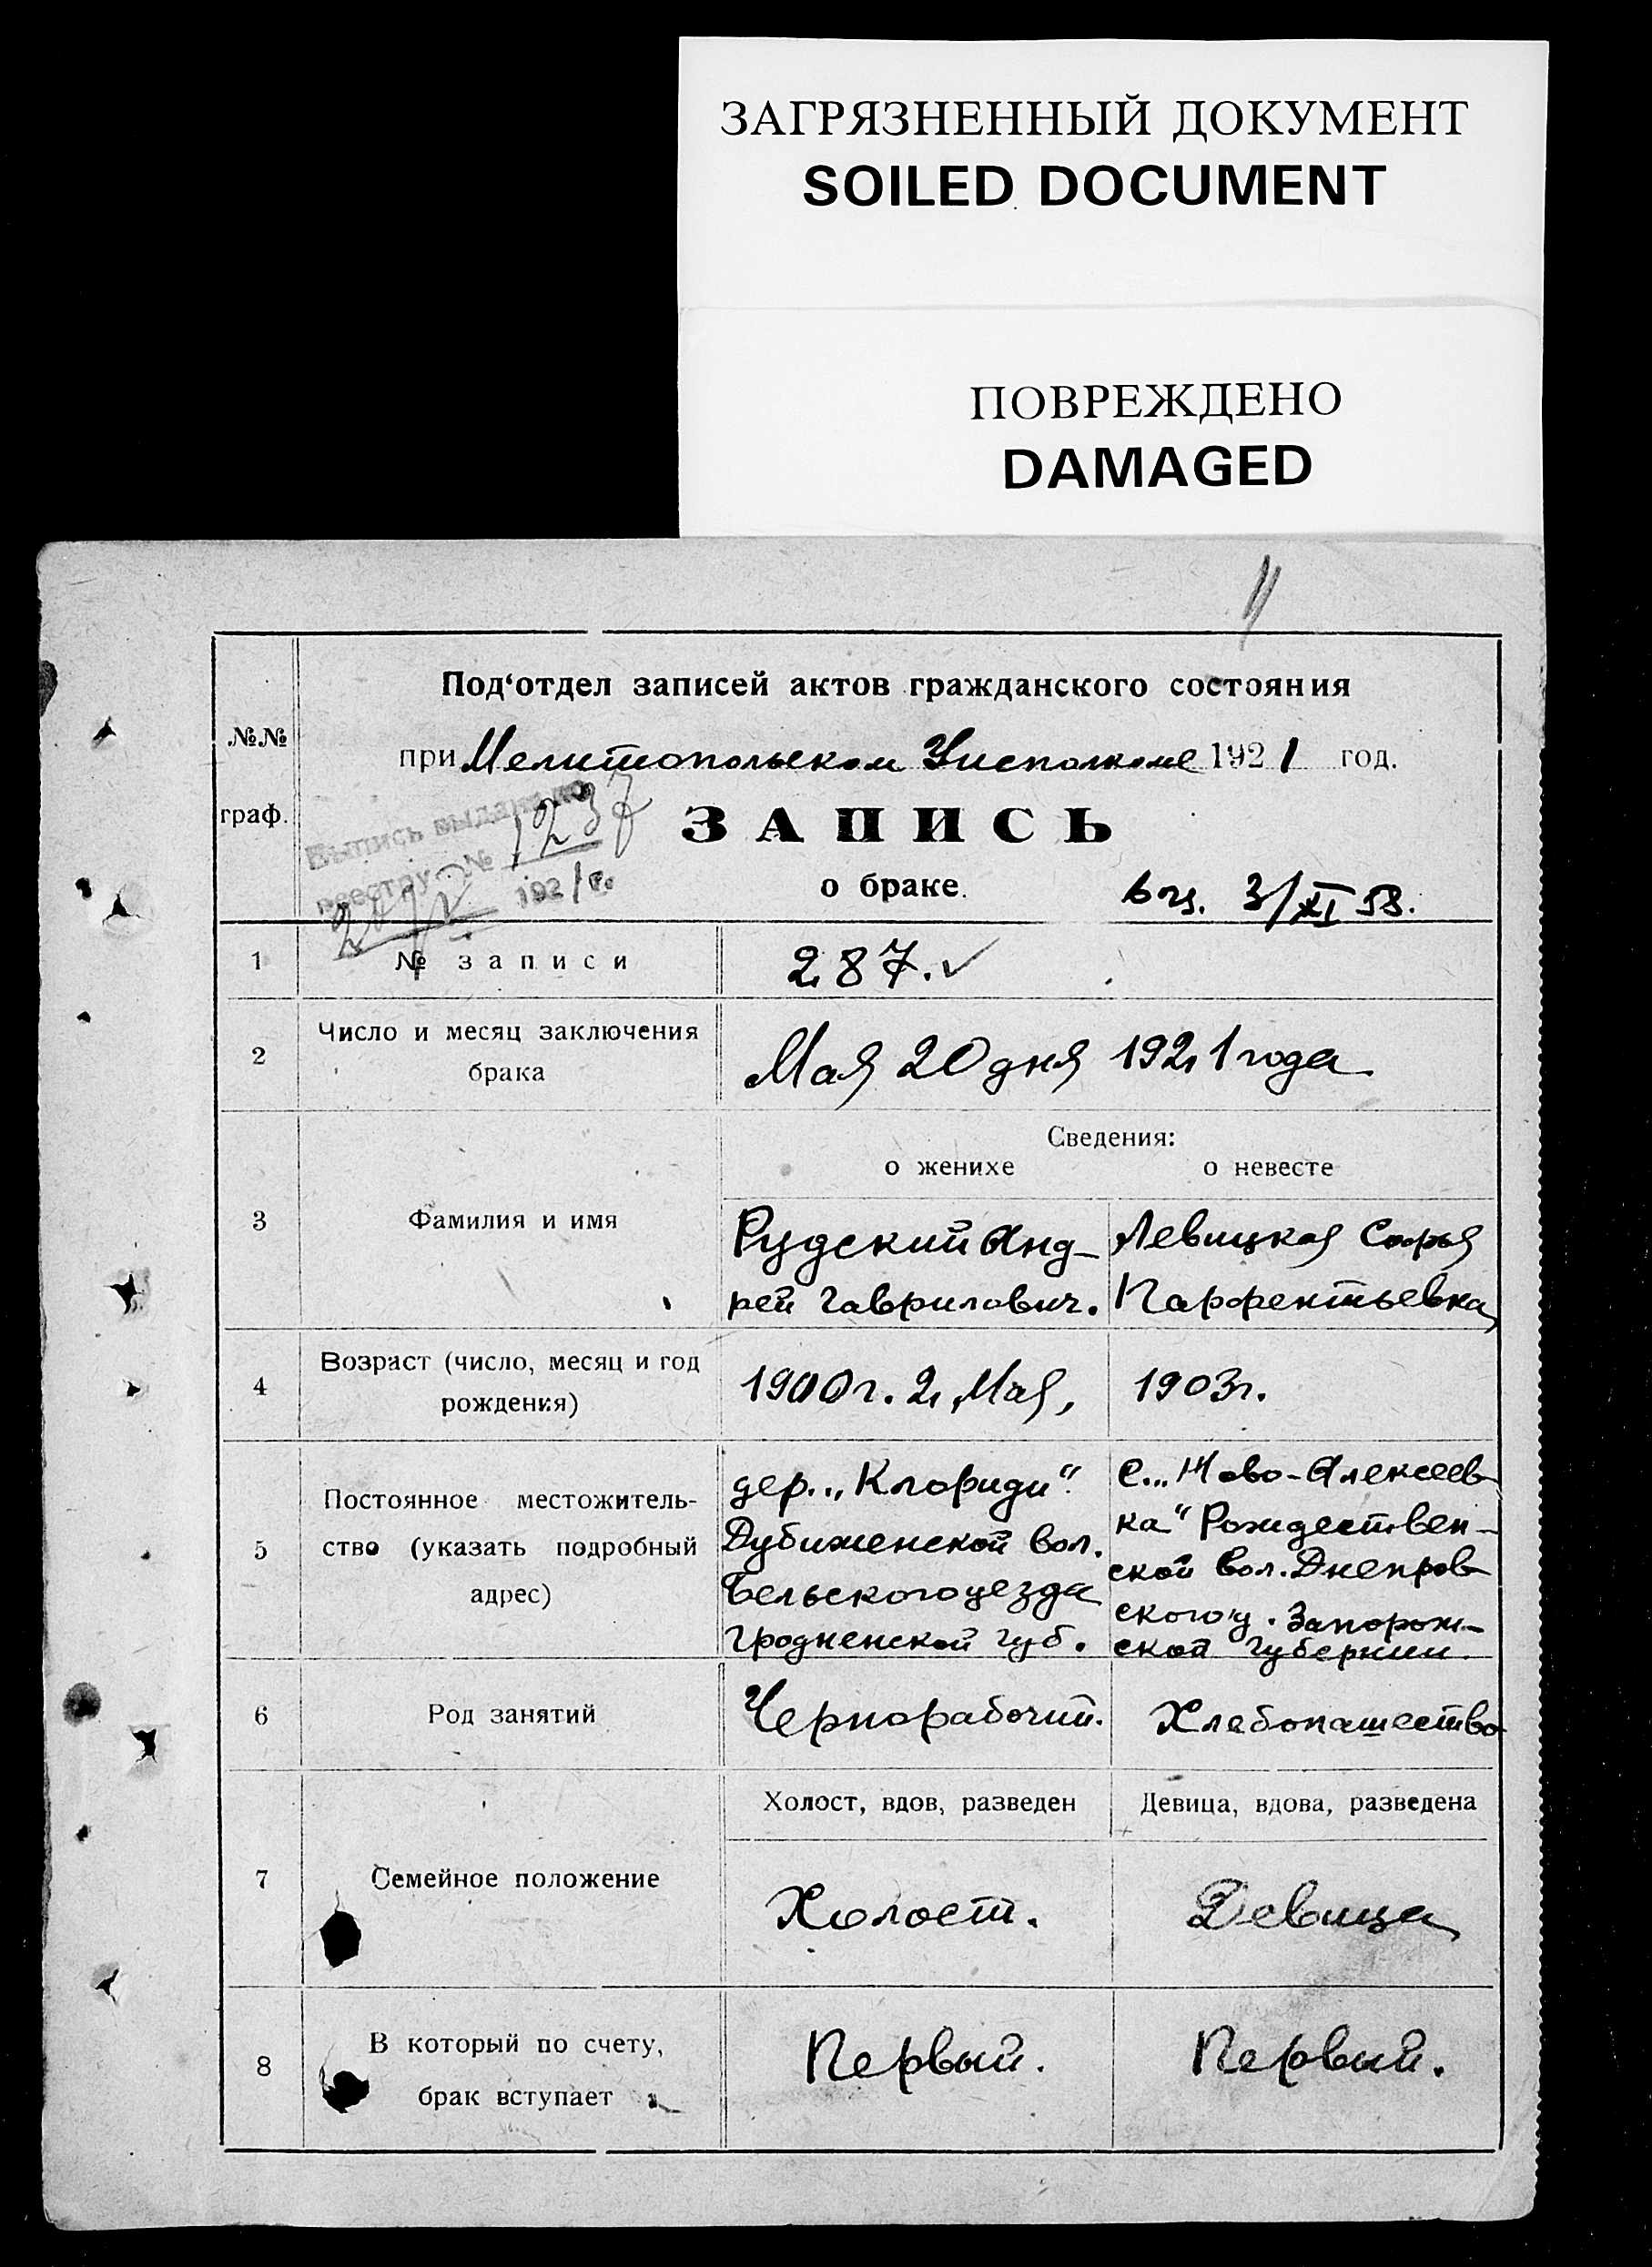 ЗАГРЯЗНЕННЫЙ ДОКУМЕНТ
SOILED DOCUMENT
ПОВРЕЖДЕНО
DAMAGED
№№ граф.
Под‘отдел записей актов гражданского состояния
при Мелитопольском Уисполкоме 1921 год.
Выпись выдана по
реестру № 1237
192 1 г.
ЗАПИСЬ
о браке.
3/XI 53.
1 № записи 287.
2 Число и месяц заключения
брака
Мая 20 дня 1921 года
Сведения:
о женихе о невесте
3 Фамилия и имя
Рудский Анд- Левицкая Софья
рей Гаврилович. Парфентьевна
4 Возраст (число, месяц и год
рождения)
1900 г. 2, Мая, 1903 г.
5 Постоянное местожитель-
ство (указать подробный
адрес)
дер. „Клофиди“.
Дубиженской вол.
Бельского уезда
Гродненской губ.
с. „Ново-Алексеев-
ка“ Рождествен-
ской вол. Днепров-
ского у. Запорож-
ской губернии.
6 Род занятий Чернорабочий. Хлебопашество
Холост, вдов, разведен Девица, вдова, разведена
7 Семейное положение Холост. Девица
8 В который по счету,
брак вступает
Первый. Первый.